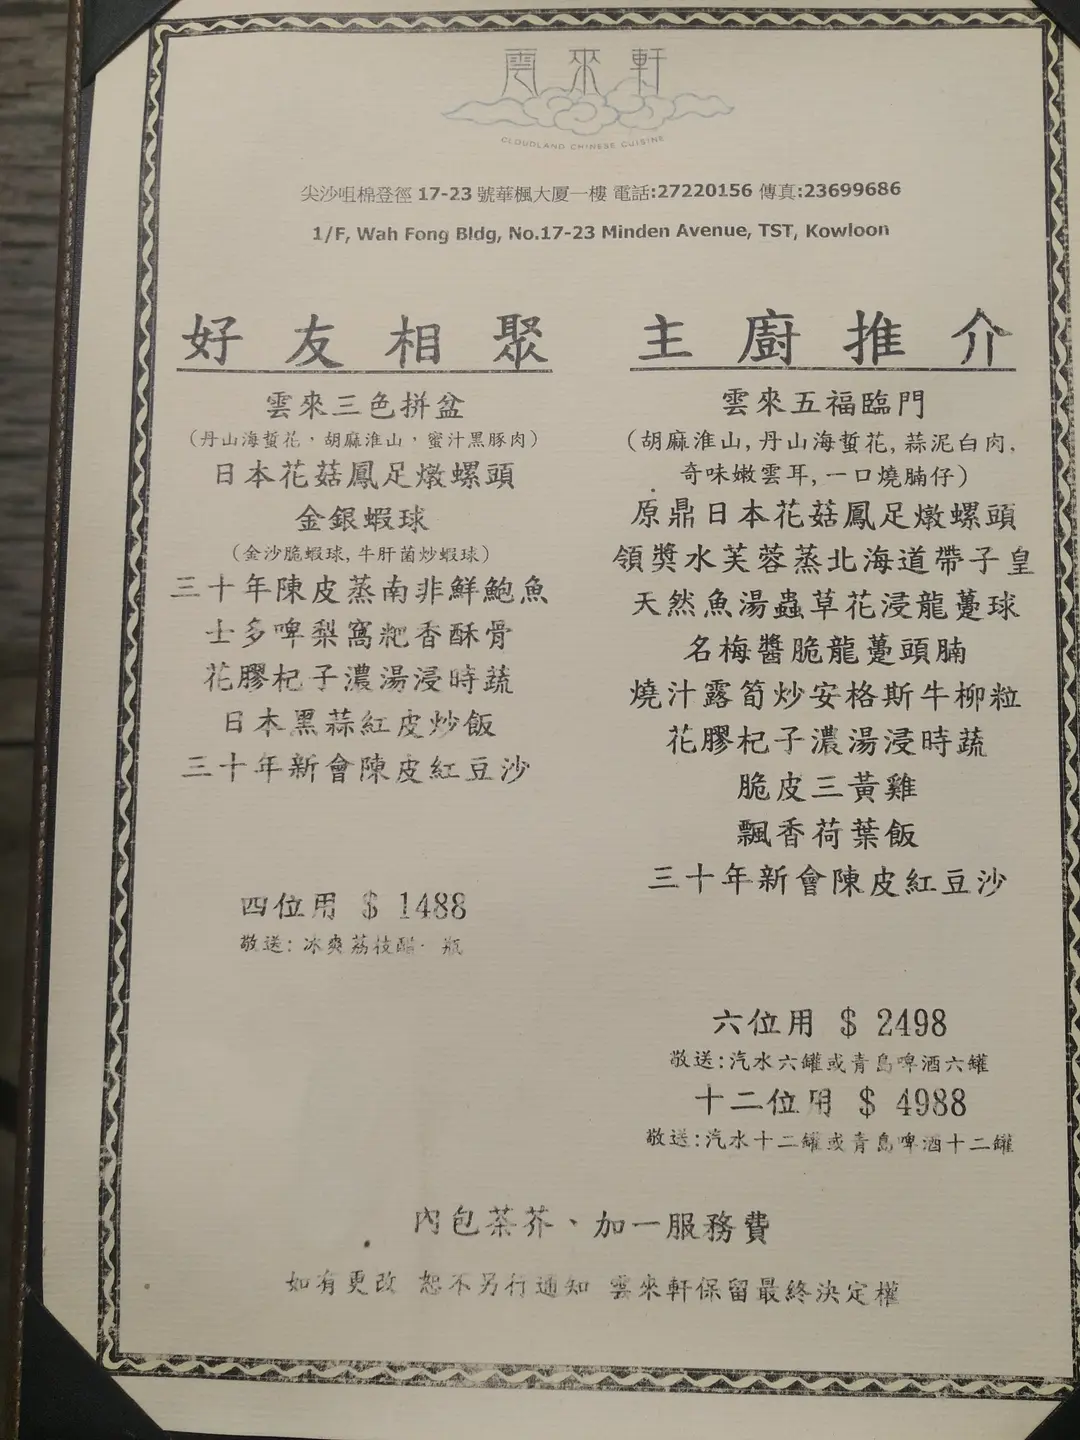 雲來軒
CLOUDLAND CHINESE CUISINE
尖沙咀棉登徑 17-23 號華楓大厦一樓 電話:27220156 傳真:23699686
1/F, Wah Fong Bldg, No.17-23 Minden Avenue, TST, Kowloon
好友相聚
雲來三色拼盆
(丹山海蜇花，胡麻淮山，蜜汁黑豚肉)
日本花菇鳳足燉螺頭
金銀蝦球
(金沙脆蝦球, 牛肝菌炒蝦球)
三十年陳皮蒸南非鮮鮑魚
士多啤梨窩粑香酥骨
花膠杞子濃湯浸時蔬
日本黑蒜紅皮炒飯
三十年新會陳皮紅豆沙
四位用 $ 1488
敬送: 冰爽荔枝醋 瓶
主廚推介
雲來五福臨門
(胡麻淮山, 丹山海蜇花, 蒜泥白肉,
奇味嫩雲耳, 一口燒腩仔)
原鼎日本花菇鳳足燉螺頭
領獎水芙蓉蒸北海道帶子皇
天然魚湯蟲草花浸龍躉球
名梅醬脆龍躉頭腩
燒汁露筍炒安格斯牛柳粒
花膠杞子濃湯浸時蔬
脆皮三黃雞
飄香荷葉飯
三十年新會陳皮紅豆沙
六位用 $ 2498
敬送:汽水六罐或青島啤酒六罐
十二位用 $ 4988
敬送:汽水十二罐或青島啤酒十二罐
內包茶芥、加一服務費
如有更改 恕不另行通知 雲來軒保留最終決定權